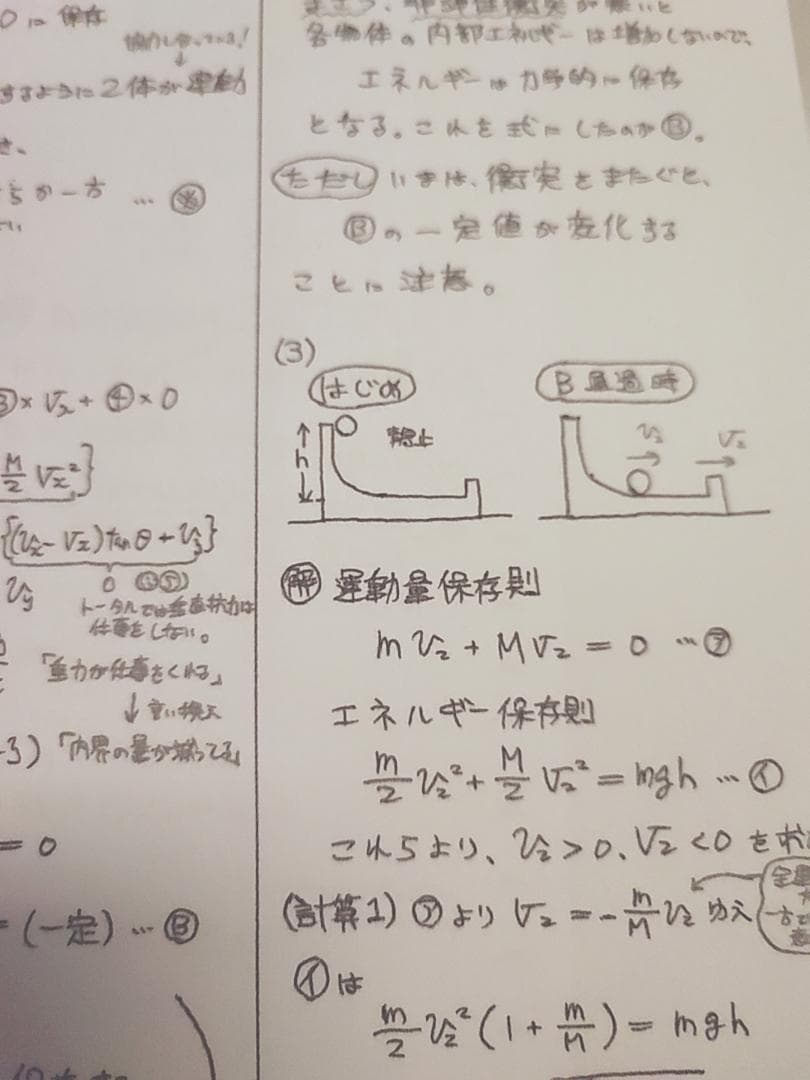 0に保存
協力し合っている!
するように2体が運動
さ、
ちが一方 … ※
③×V₂+④×0
M/2 Vx²}
{(vx-Vx)tanθ+vy}
vy 0 (∵⑤)
トータルでは垂直抗力は
仕事をしない。
「重力が仕事をくれる」
↓言い換え
-3)「内界の量が減ってる」
= 0
= (一定) … Ⓑ
非弾性衝突が無いと
各物体の内部エネルギーは増加しないので、
エネルギーは力学的に保存
となる。これを式にしたのがⒷ。
ただし いまは、衝突をまたぐと、
Ⓑの一定値が変化する
ことに注意。
(3)
はじめ
h 静止
B通過時
v₂ V₂
解 運動量保存則
mv₂ + MV₂ = 0 … ㋐
エネルギー保存則
m/2 v₂² + M/2 V₂² = mgh … ㋑
これらより、v₂ > 0、V₂ < 0 を求
(計算1) ㋐より V₂ = -m/M v₂ ゆえ
㋑は
m/2 v₂² (1 + m/M) = mgh